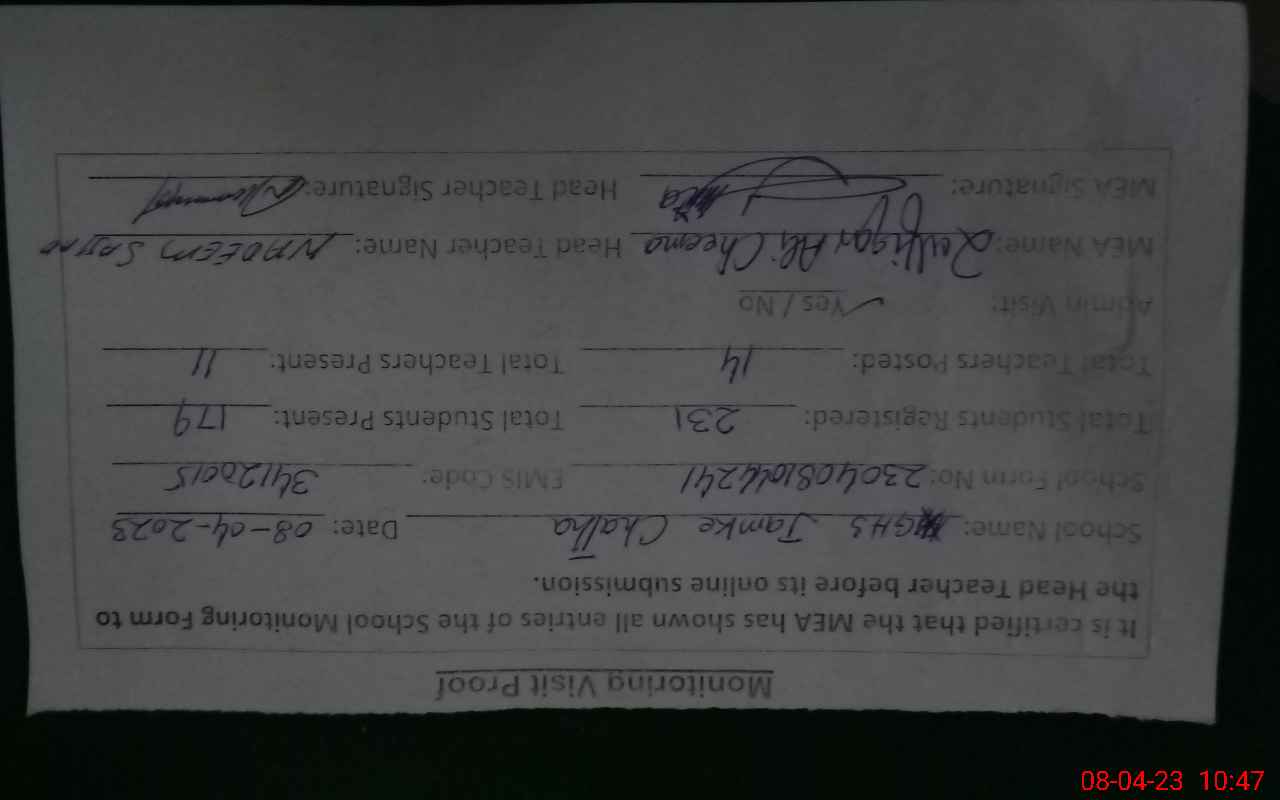 Monitoring Visit Proof
It is certified that the MEA has shown all entries of the School Monitoring Form to
the Head Teacher before its online submission.
School Name: GHS Jamke Chattha Date: 08-04-2023
School Form No: 230408104424 1 EMIS Code: 34120015
Total Students Registered: 231 Total Students Present: 179
Total Teachers Posted: 14 Total Teachers Present: 11
Admin Visit: Yes / No
MEA Name: Zulfiqar Ali Cheema Head Teacher Name: NADEEM
MEA Signature: Head Teacher Signature:
08-04-23 10:47